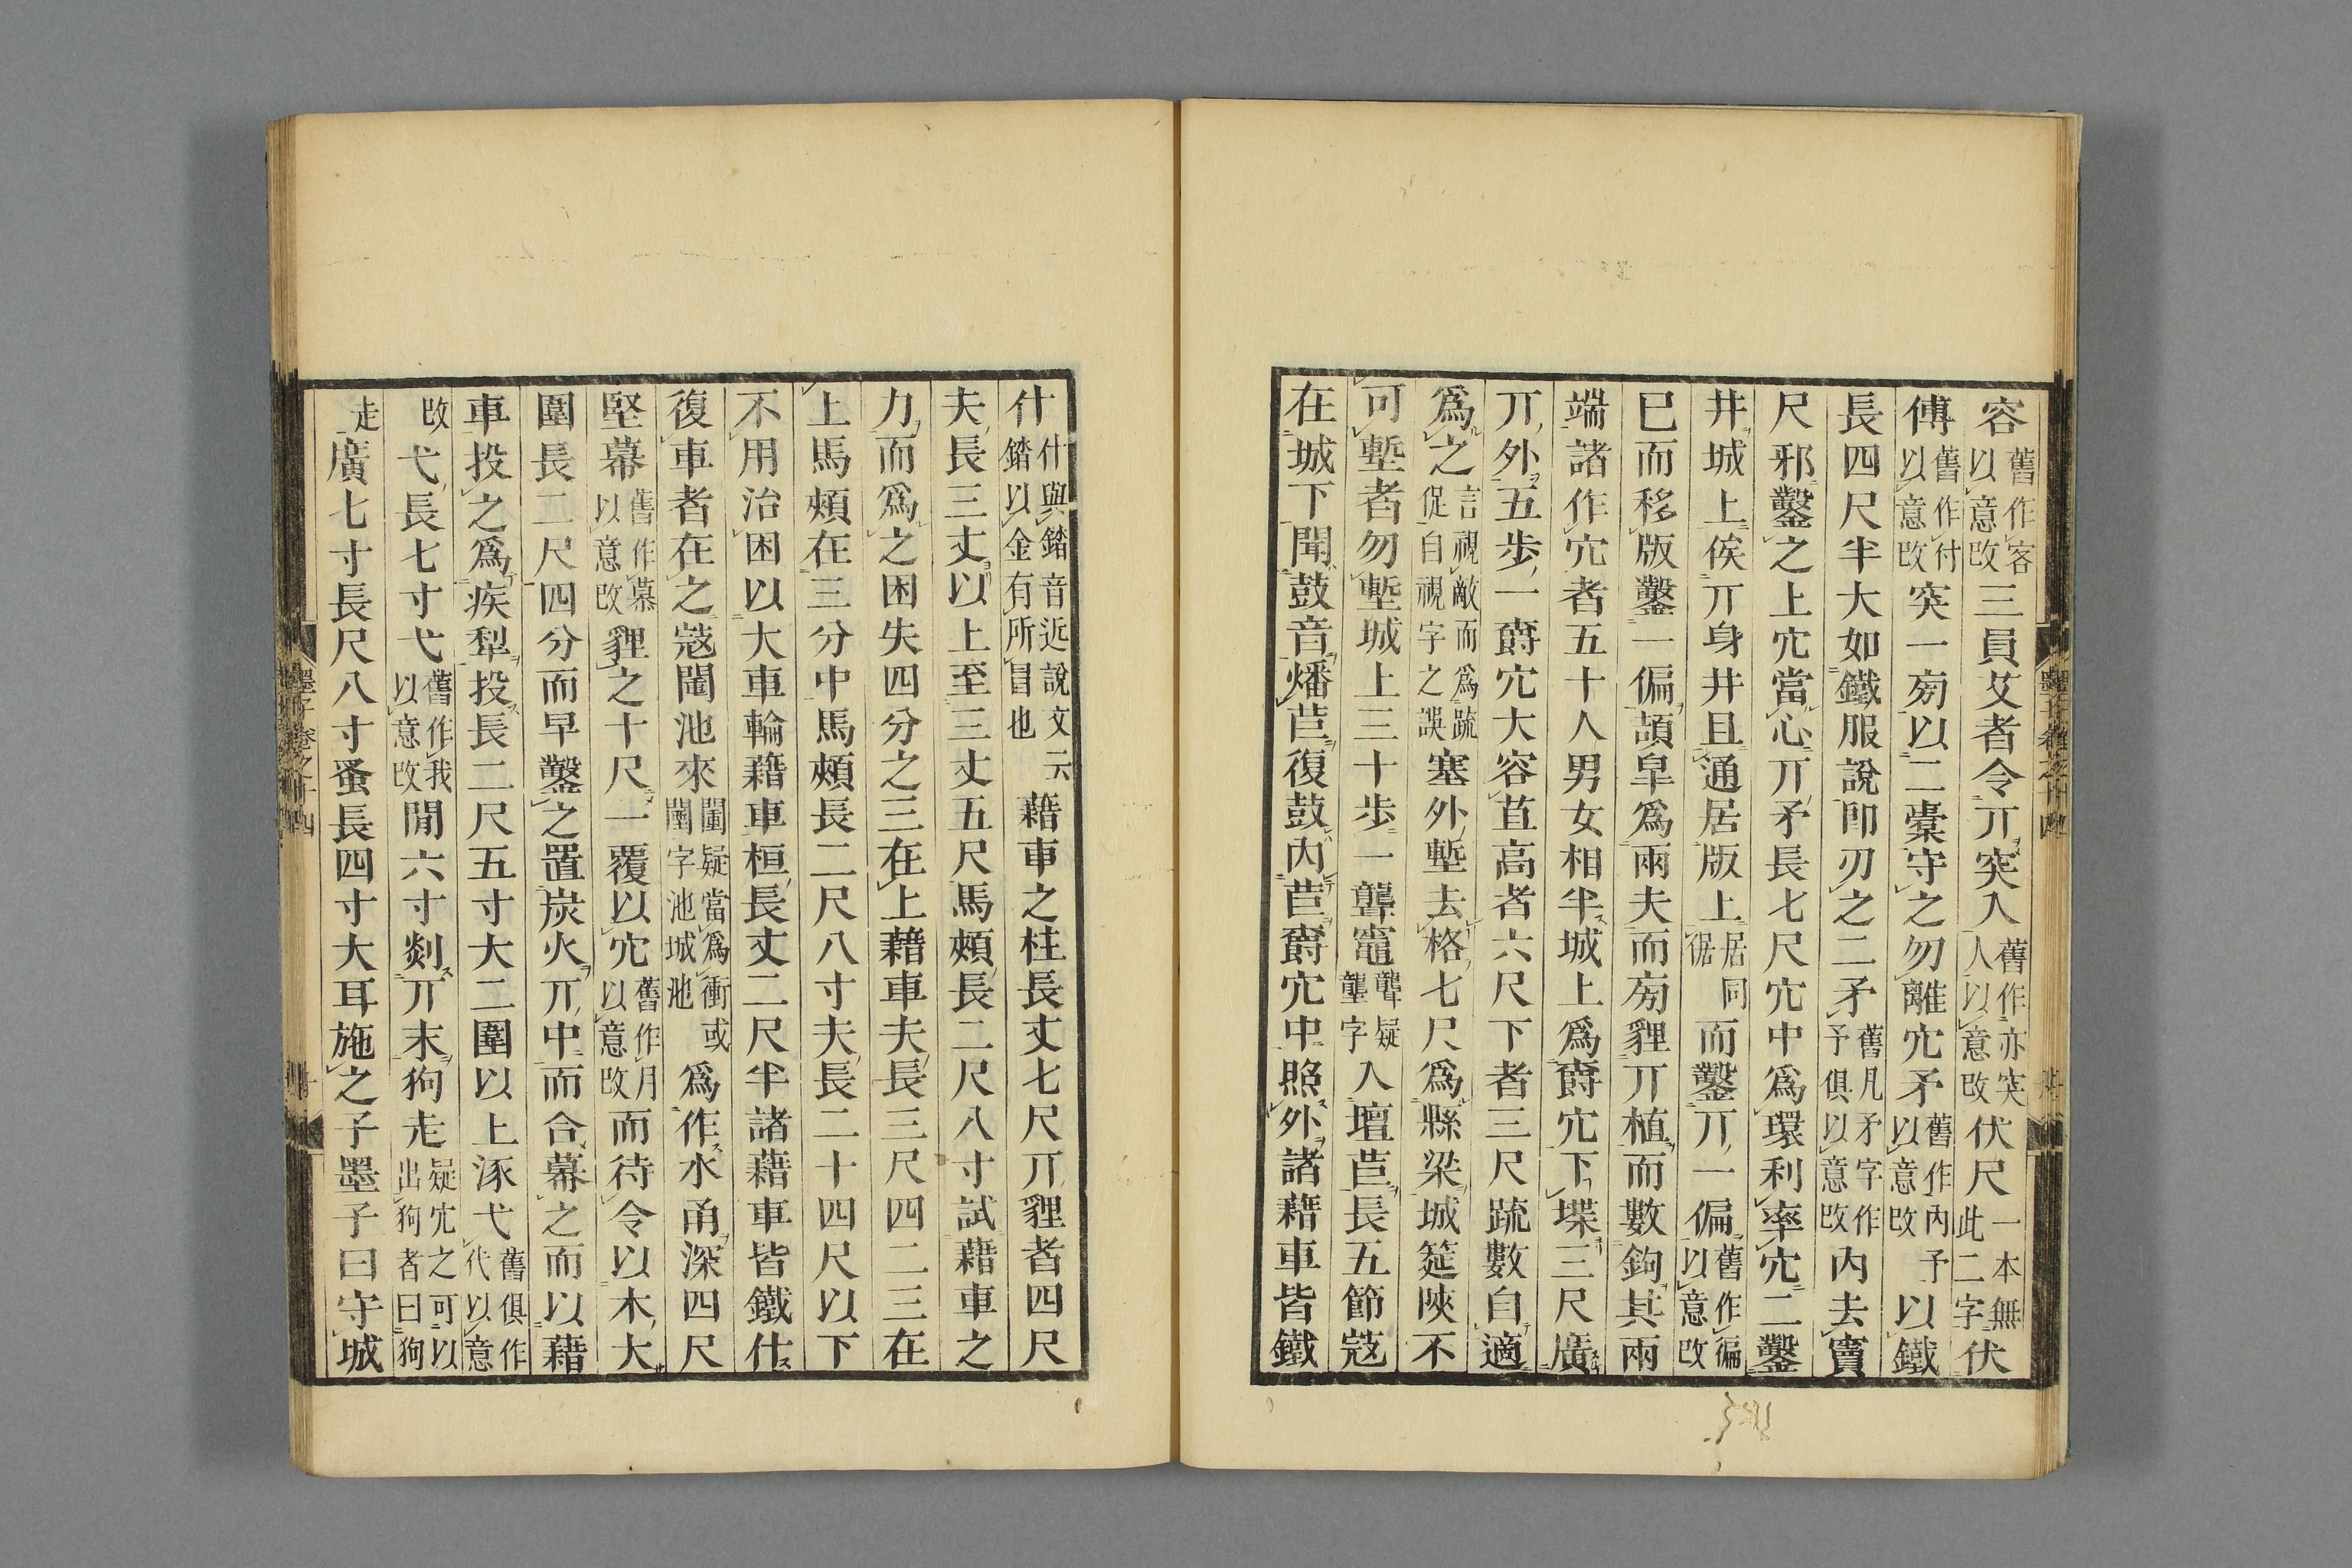 容舊作客以意改三員艾者令丌突入舊作亦突人以意改伏尺一本無此二字伏
傅舊作付以意改突一㫄以二橐守之勿離穴矛舊作內予以意改以鐵
長四尺半大如鐵服說卽刃之二矛舊凡矛字作予俱以意改內去竇
尺邪鑿之上穴當心丌矛長七尺穴中爲環利率穴二鑿
井城上俟丌身井且通居版上居同倨而鑿丌一偏舊作徧以意改
已而移版鑿一偏頡皐爲兩夫而㫄貍丌植而數鉤其兩
端諸作穴者五十人男女相半城上爲爵穴下堞三尺廣
丌外五步一爵穴大容苴高者六尺下者三尺疏數自適
爲之言視敵而爲疏促自視字之誤塞外塹去格七尺爲縣梁城筵陜不
可塹者勿塹城上三十步一聾竈聾疑壟字入壇苣長五節寇
在城下聞鼓音燔苣復鼓內苣爵穴中照外諸藉車皆鐵
什什與錔音近說文云錔以金有所冒也藉車之柱長丈七尺丌貍者四尺
夫長三丈以上至三丈五尺馬頰長二尺八寸試藉車之
力而爲之困失四分之三在上藉車夫長三尺四二三在
上馬頰在三分中馬頰長二尺八寸夫長二十四尺以下
不用治困以大車輪藉車桓長丈二尺半諸藉車皆鐵什
復車者在之寇闉池來闉疑當爲衝或闉字池城池爲作水甬深四尺
堅幕舊作慕以意改貍之十尺一覆以穴舊作月以意改而待令以木大
圍長二尺四分而早鑿之置炭火丌中而合幕之而以藉
車投之爲疾犁投長二尺五寸大二圍以上涿弋舊俱作代以意
改弋長七寸弋舊作我以意改閒六寸剡丌末狗走疑穴之可以出狗者曰狗
走廣七寸長尺八寸蚤長四寸大耳施之子墨子曰守城
墨子卷之十四